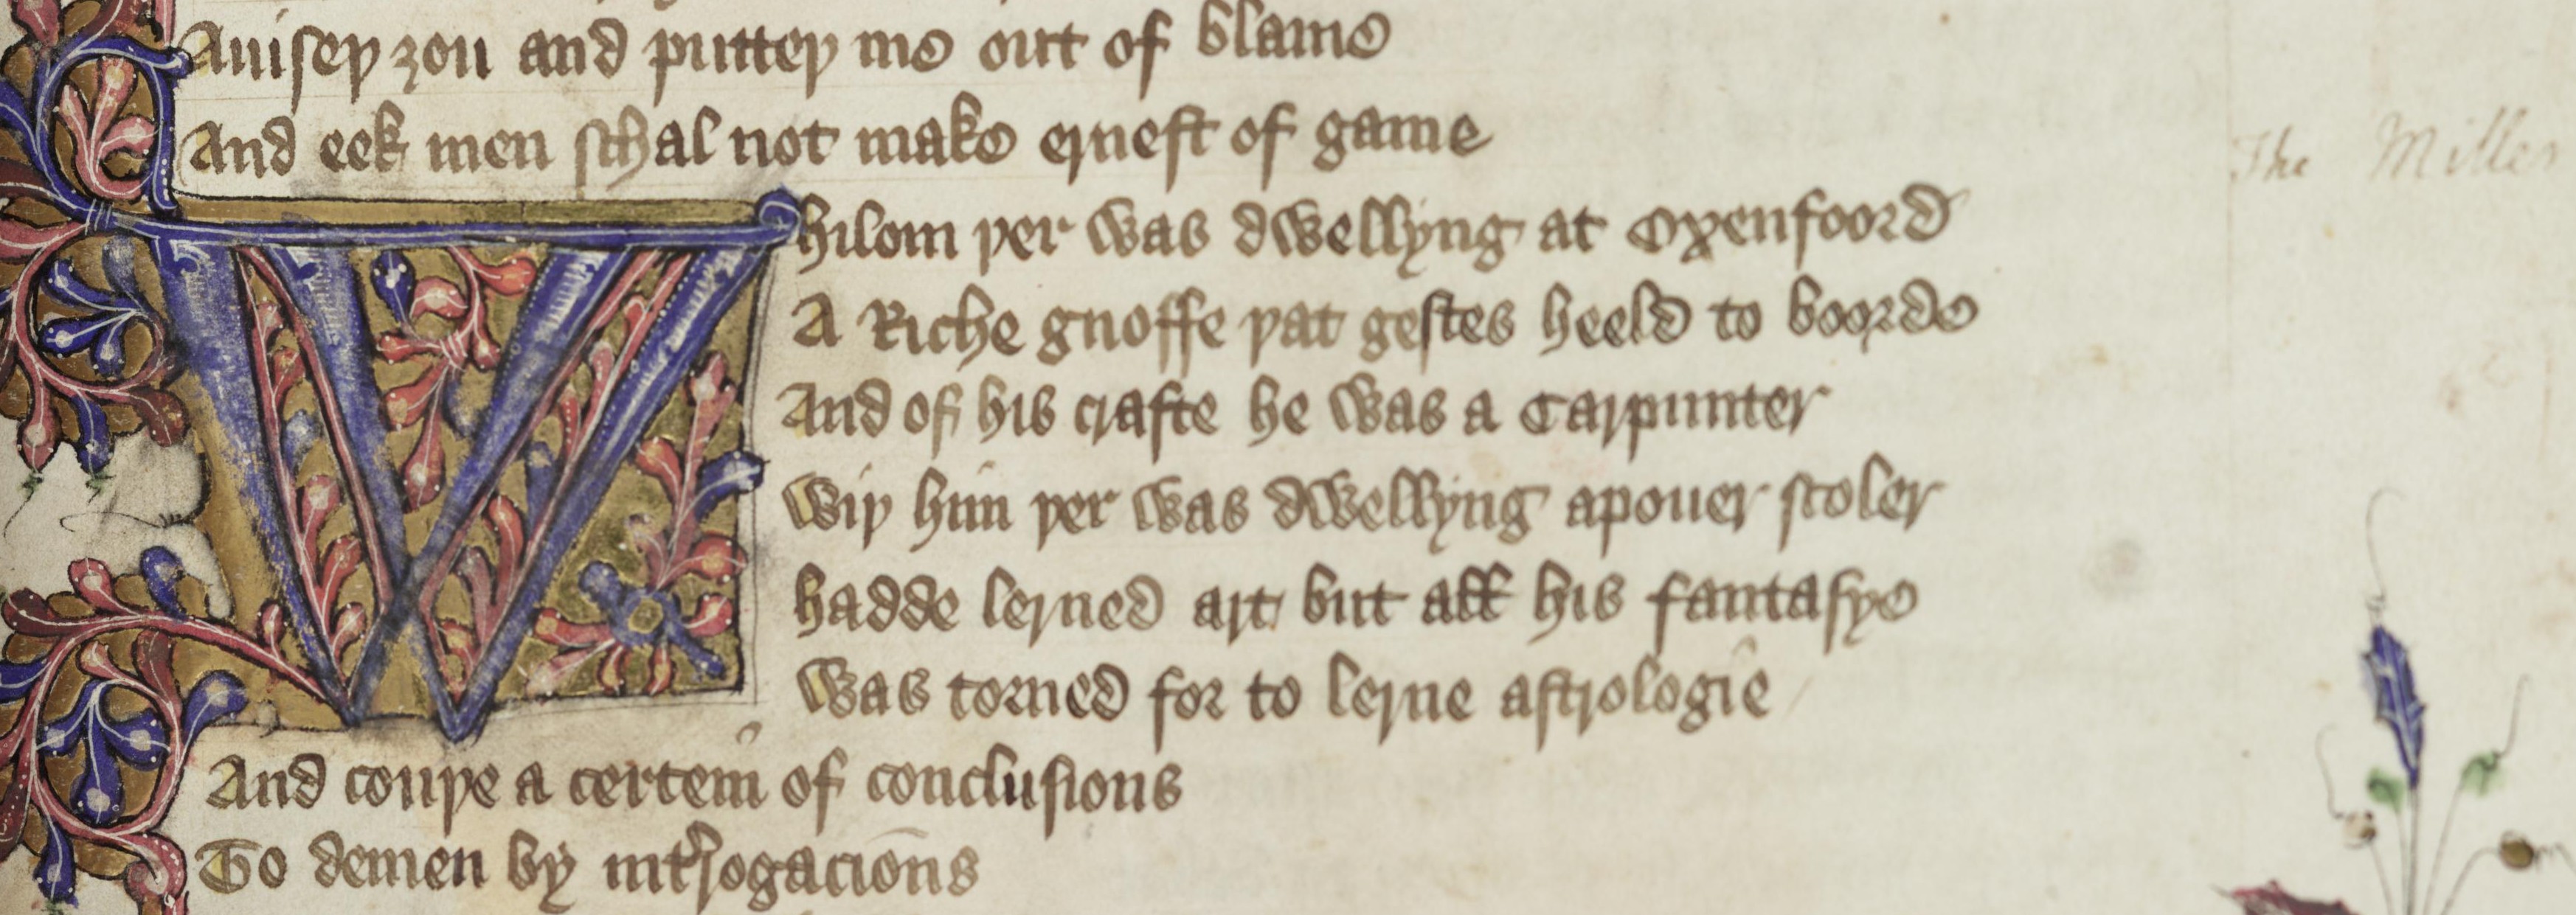 Auiseþ ȝou and putteþ me out of blame
And eek men schal not make ernest of game
The Miller
Whilom þer was dwellyng at Oxenfoord
A Riche gnoffe þat gestes heeld to boorde
And of his crafte he was a Carpunter
Wiþ him þer was dwellyng apouer scoler
hadde lerned art but all his fantasye
was torned for to lerne astrologie
And couþe a certein of conclusions
To demen by intrrogacions